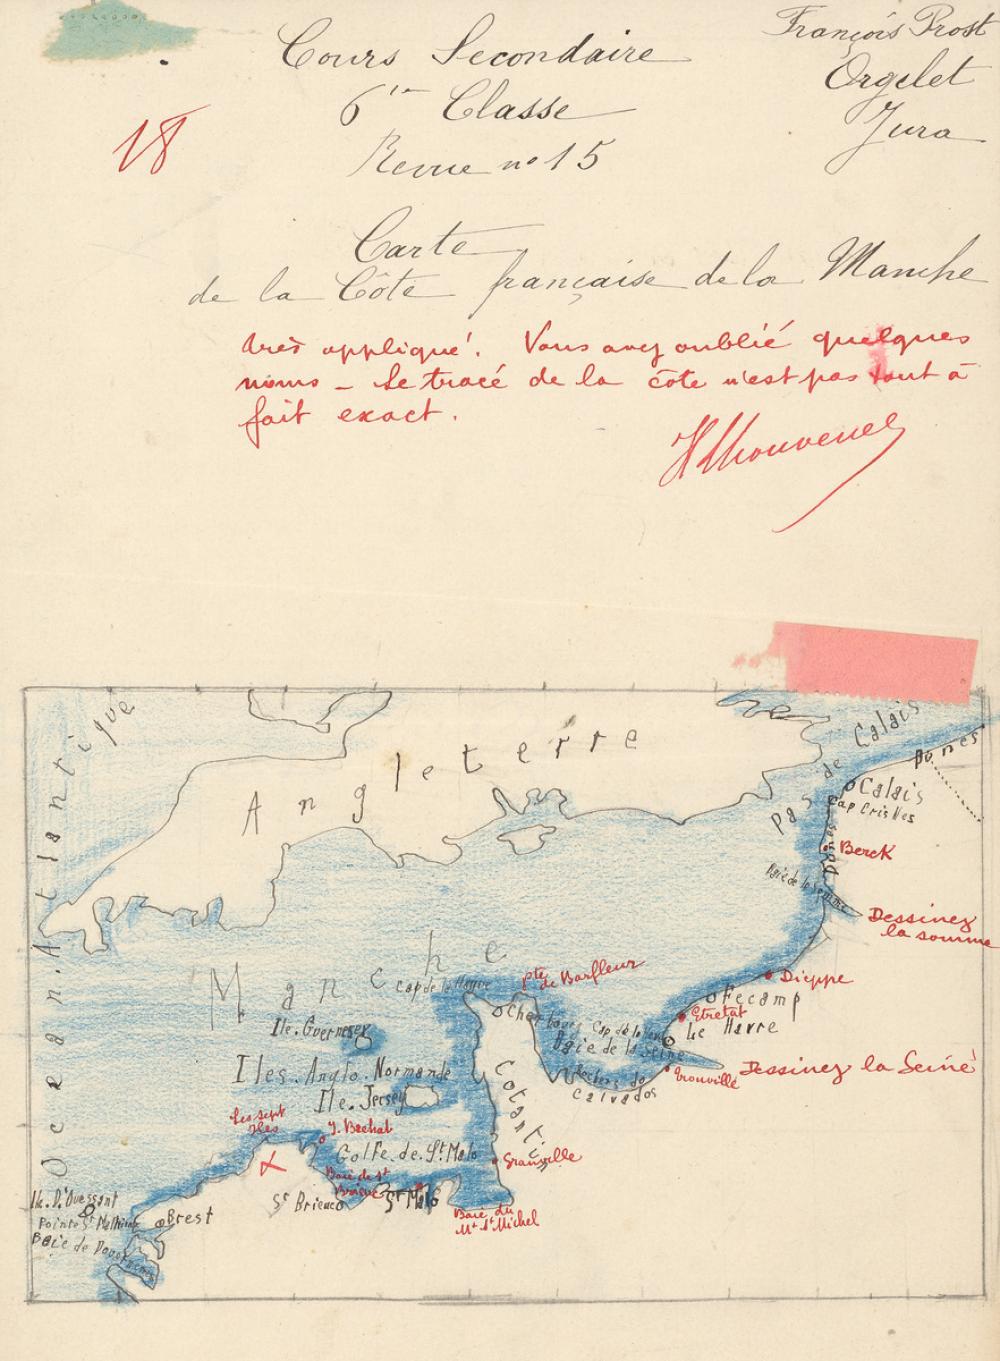 François Prost
Orgelet
Jura
Cours Secondaire
6ie Classe
Revue no 15
18
Carte
de la Côte française de la Manche
très appliqué. Vous avez oublié quelques
noms - Le tracé de la côte n'est pas tout à
fait exact.
Océan Atlantique
Angleterre
Manche
Pas de Calais
Dunes
Calais
Cap Gris Nes
Dunes
Berck
Baie de la Somme
Dessinez
la somme
Dieppe
Fecamp
Etretat
Le Havre
Cap de la Hève
Baie de la Seine
Dessinez la Seine
Trouville
Rochers du
Calvados
Pte
de Barfleur
Cap de la Hague
Cherbourg
Cotantin
Ile. Guernesey
Iles. Anglo. Normande
Ile. Jersey
Les sept
Iles
I. Bréhat
Golfe. de. St Malo
Granville
Baie de St
Brieuc
St Brieuc
St Malo
Baie du
Mt St Michel
Ile. D'Ouessant
Pointe St Mathieu
Brest
Baie de Douarnenez